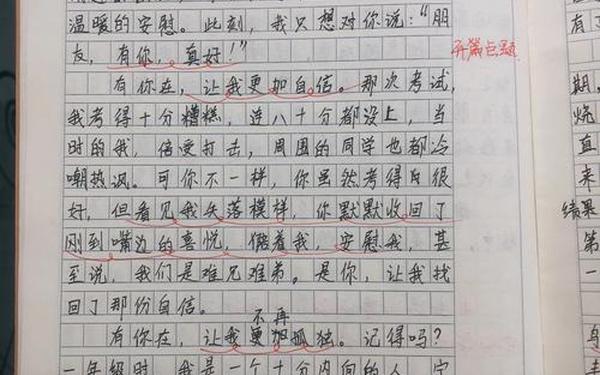 温暖的安慰。此刻，我只想对你说：“朋
友，有你，真好！”
开篇点题
有你在，让我更加自信。那次考试，
我考得十分糟糕，连八十分都没上，当
时的我，倍受打击，周围的同学也都冷
嘲热讽。可你不一样，你虽然考得很
好，但看见我失落模样，你默默收回了
刚到嘴边的喜悦，借着我，安慰我，甚
至说，我们是难兄难弟。是你，让我找
回了那份自信。
不再
有你在，让我更加孤独。记得吗？
一年级时，我是一个十分内向的人，宁
有了
期，
烧
直
来
结果
第